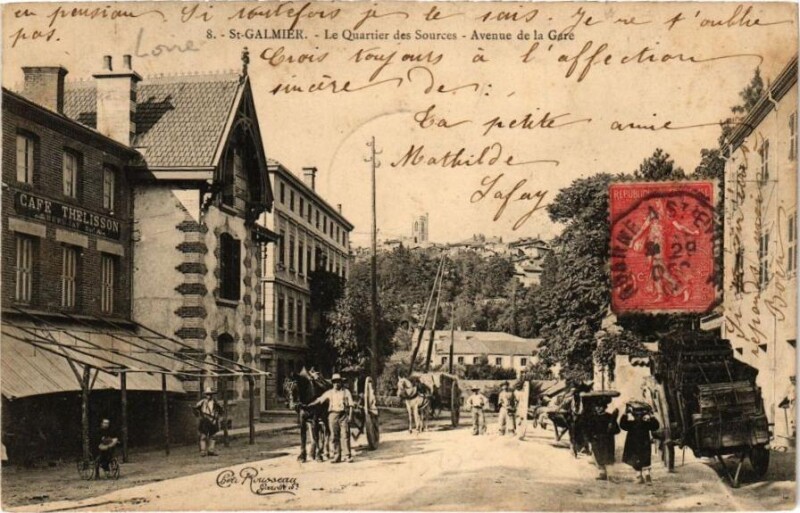 en pension Si toutefois je le sais. Je ne t'oublie
pas.
Loire
8. - St-GALMIER. - Le Quartier des Sources - Avenue de la Gare
Crois toujours à l'affection
sincère de :
Ta petite amie
Mathilde
Lafay
REPUBLIQUE
CAFÉ THELISSON
Rousseau